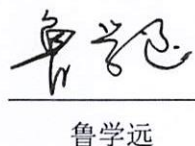 鲁学远
鲁学远